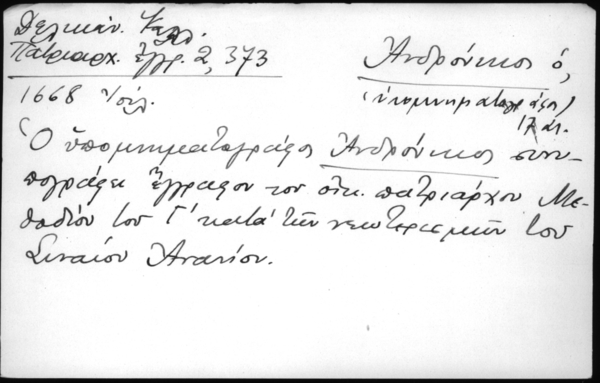 Δελικάν. Καλλ.
Πατριαρχ. ἔγγρ. 2, 373
Ἀνδρόνικος ὁ,
(ὑπομνηματογράφος)
17 αἰ.
1668 Ἰουλ.
Ὁ ὑπομνηματογράφος Ἀνδρόνικος συνυ-
πογράφει ἔγγραφον του οἰκ. πατριάρχου Με-
θοδίου του Γ' κατά τῶν νεωτερισμῶν του
Σιναίου Ἀνανίου.